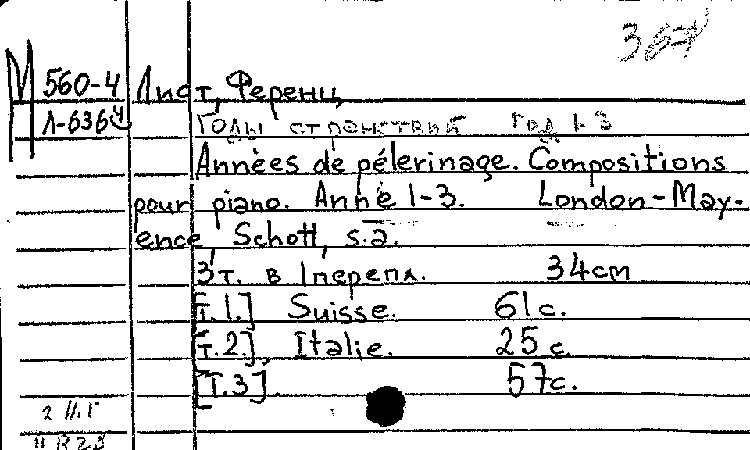 М 560-4 Лист, Ференц
Л-636ч
Годы странствий Год 1-3
Années de pélerinaçe. Compositions
pour piano. Anné 1-3. London-May-
ence, Schott, s.a.
3 т. в 1 перепл. 34 см
[т.1.] Suisse. 61 с.
[т.2]. Italie. 25 с.
[т.3] 57 с.